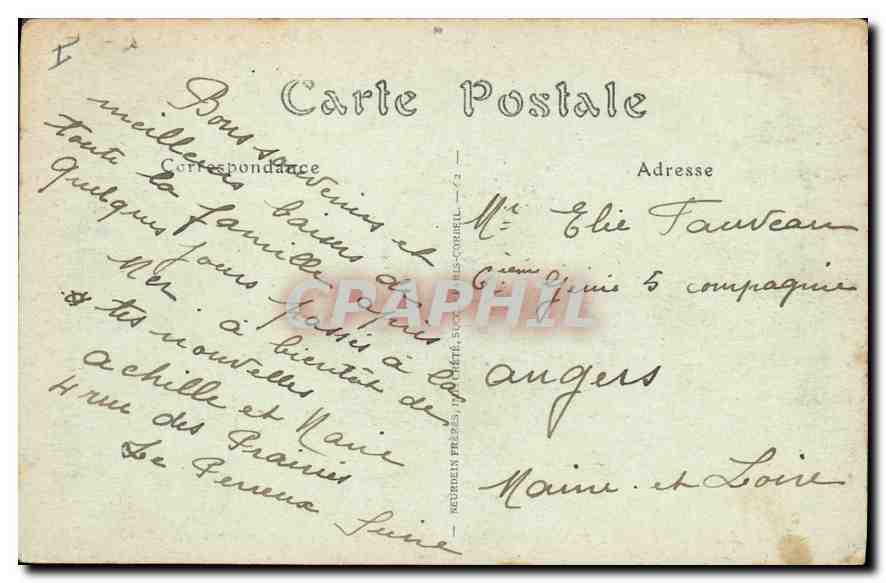 I
Carte Postale
Correspondance
Adresse
Bons souvenirs et
meilleurs baisers de
toute la famille après
quelques jours passés à la
Mer à bientôt de
tes nouvelles
Achille et Marie
4 rue des Prairies
Le Perreux Seine
Mr Elie Fauveau
6ième Génie 5 compagnie
Angers
Maine-et-Loire
CPAPHIL
NEURDEIN FRÈRES, IMP. CRÉTÉ, SUCC. PARIS-CORBEIL.